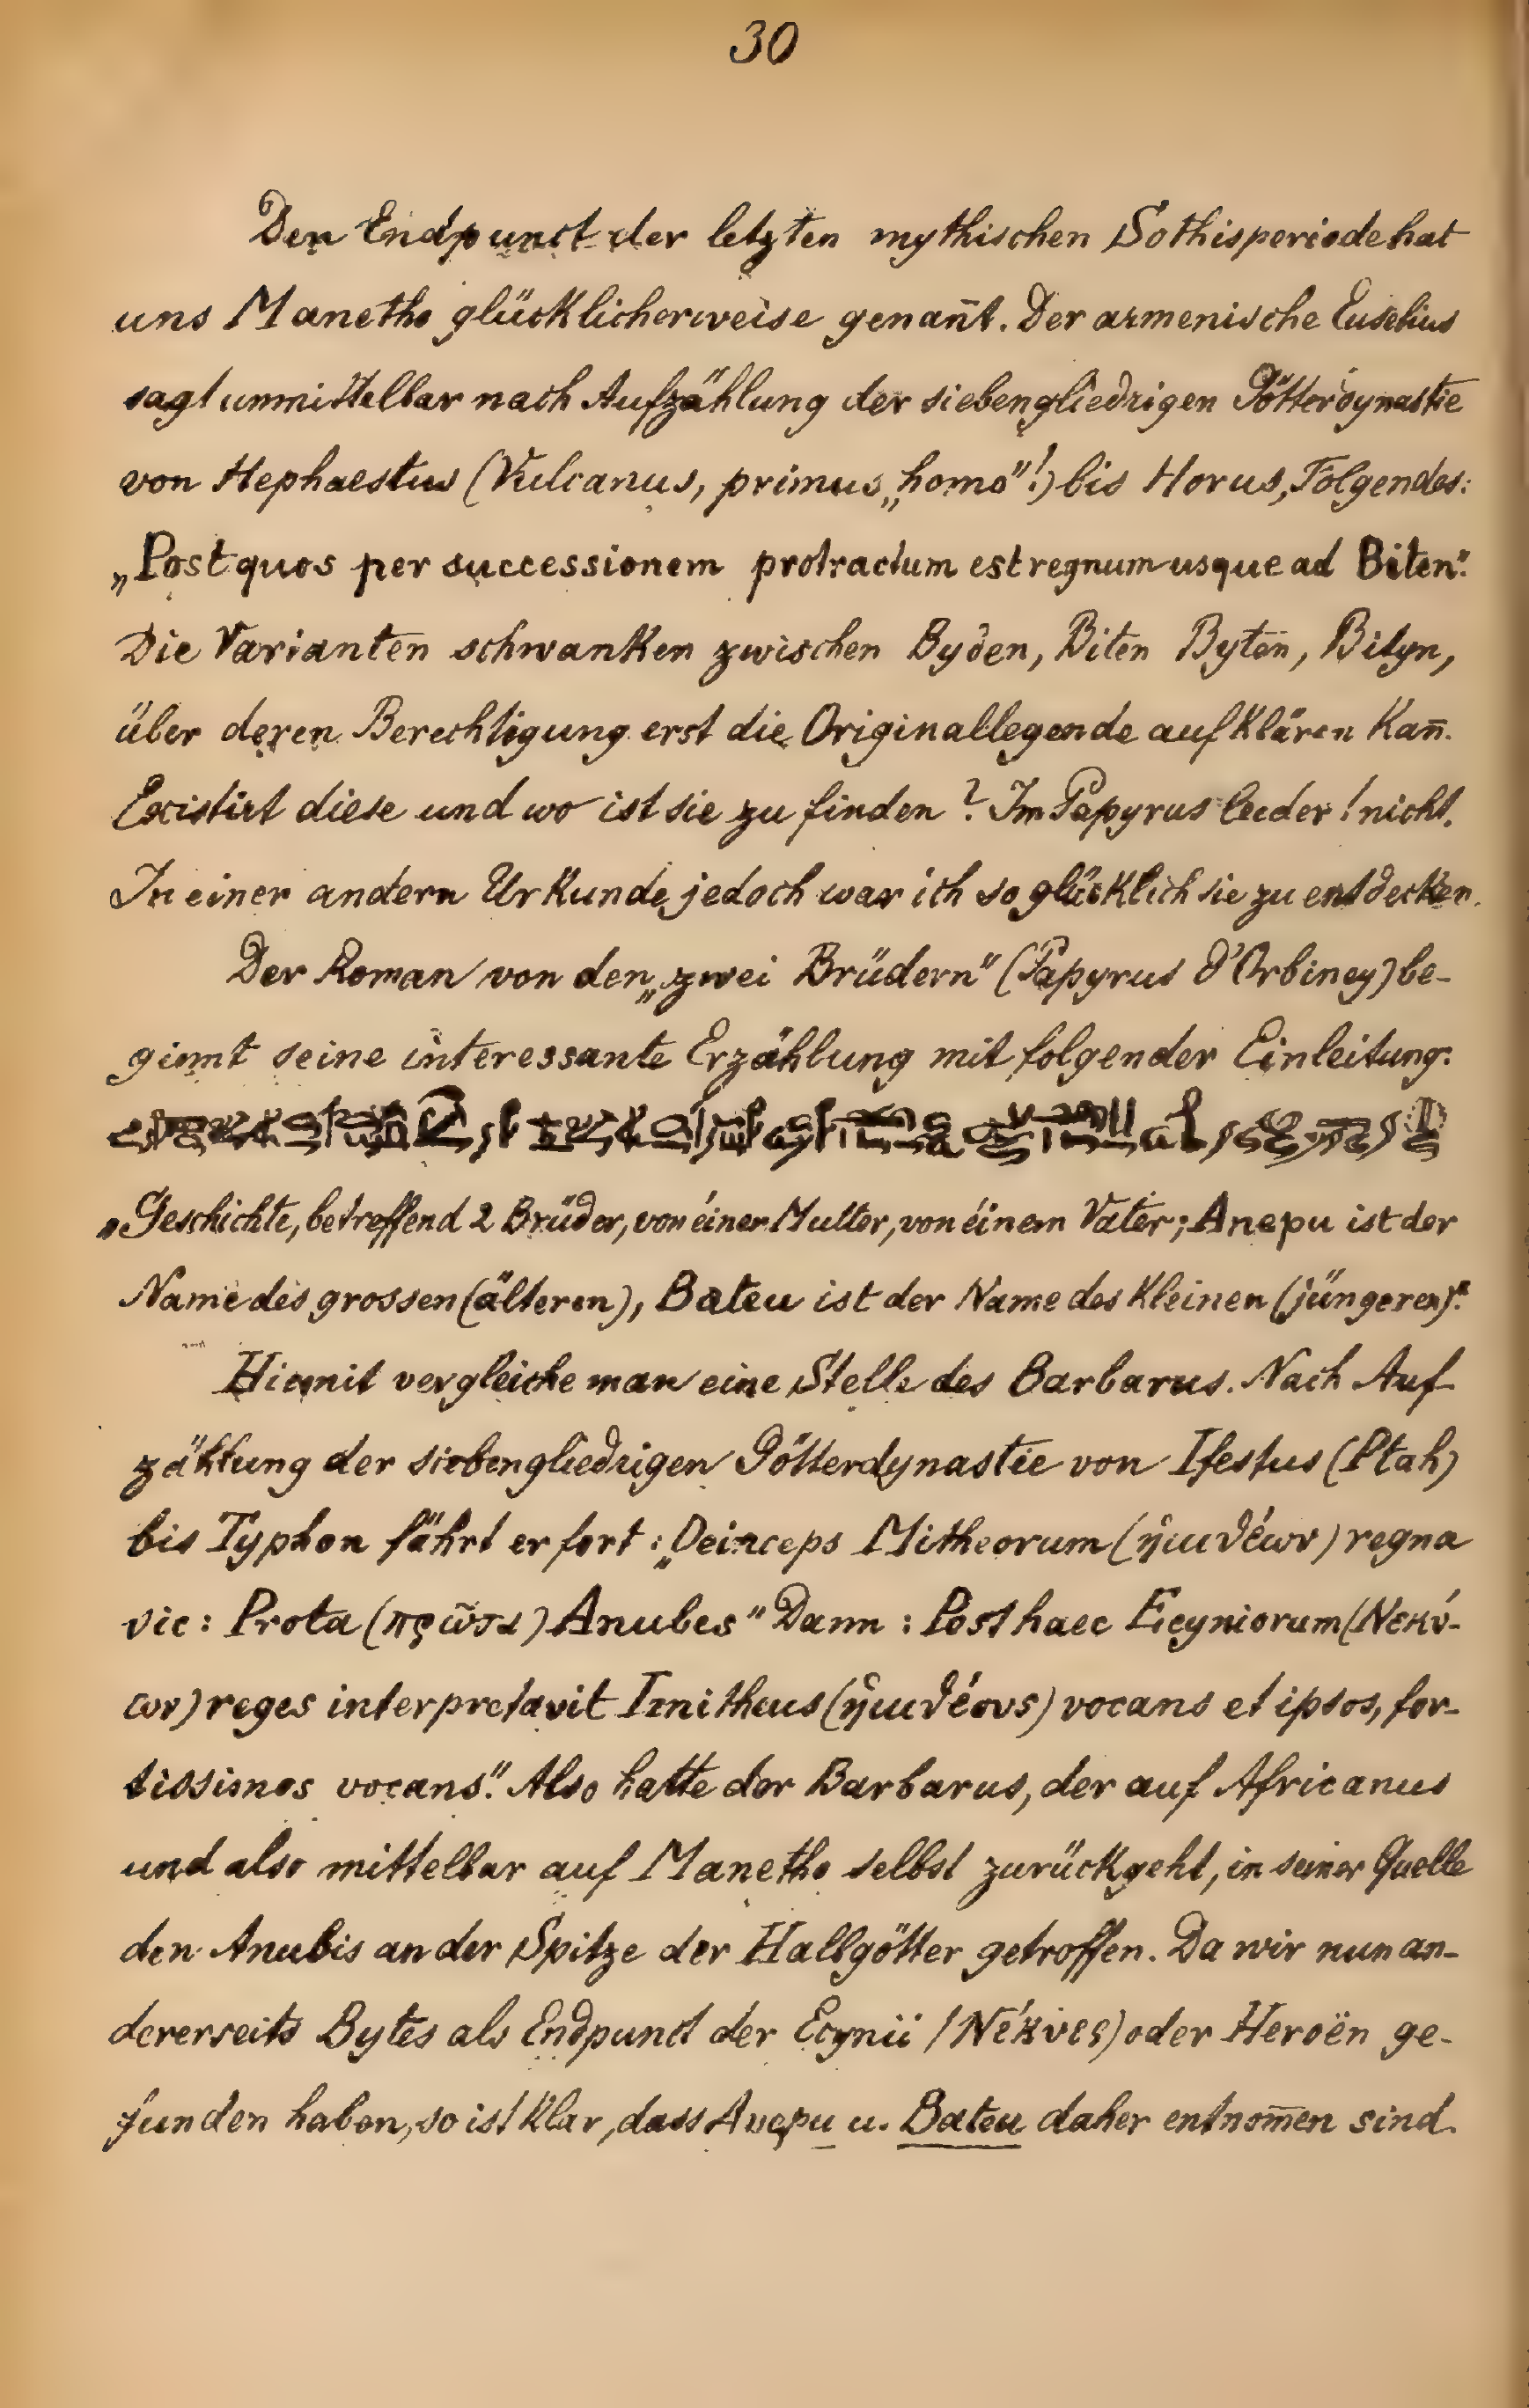 30
Den Endpunct der letzten mythischen Sothisperiode hat
uns Manetho glücklicherweise genan̄t. Der armenische Eusebius
sagt unmittelbar nach Aufzählung der siebengliedrigen Götterdynastie
von Hephaestus (Vulcanus, primus „homo"!) bis Horus, Folgendes:
„Post quos per successionem protractum est regnum usque ad Biten".
Die Varianten schwanken zwischen Byden, Biten Byten, Bityn,
über deren Berechtigung erst die Originallegende aufklären kan̄.
Existirt diese und wo ist sie zu finden? Im Papyrus leider! nicht.
In einer andern Urkunde jedoch war ich so glücklich sie zu entdecken.
Der Roman von den „zwei Brüdern" (Papyrus d'Orbiney) be-
ginnt seine interessante Erzählung mit folgender Einleitung:
„Geschichte, betreffend 2 Brüder, von éiner Mutter, von éinem Vater; Anepu ist der
Name des grossen (älteren), Bateu ist der Name des kleinen (jüngeren)."
Hiemit vergleiche man eine Stelle des Barbarus. Nach Auf-
zählung der siebengliedrigen Götterdynastie von Ifestus (Ptah)
bis Typhon fährt er fort: „Deinceps Mitheorum (ἡμιθέων) regna
sic: Prota (πρῶτα) Anubes" Dann: Post haec Ecyniorum (Νεκύ-
ων) reges interpretavit Imitheus (ἡμιθέους) vocans et ipsos, for-
tissimos vocans". Also hatte der Barbarus, der auf Africanus
und also mittelbar auf Manetho selbst zurückgeht, in seiner Quelle
den Anubis an der Spitze der Halbgötter getroffen. Da wir nun an-
dererseits Bytes als Endpunct der Ecynii (Νέκυες) oder Heroën ge-
funden haben, so ist klar, dass Anepu u. Bateu daher entnom̄en sind.